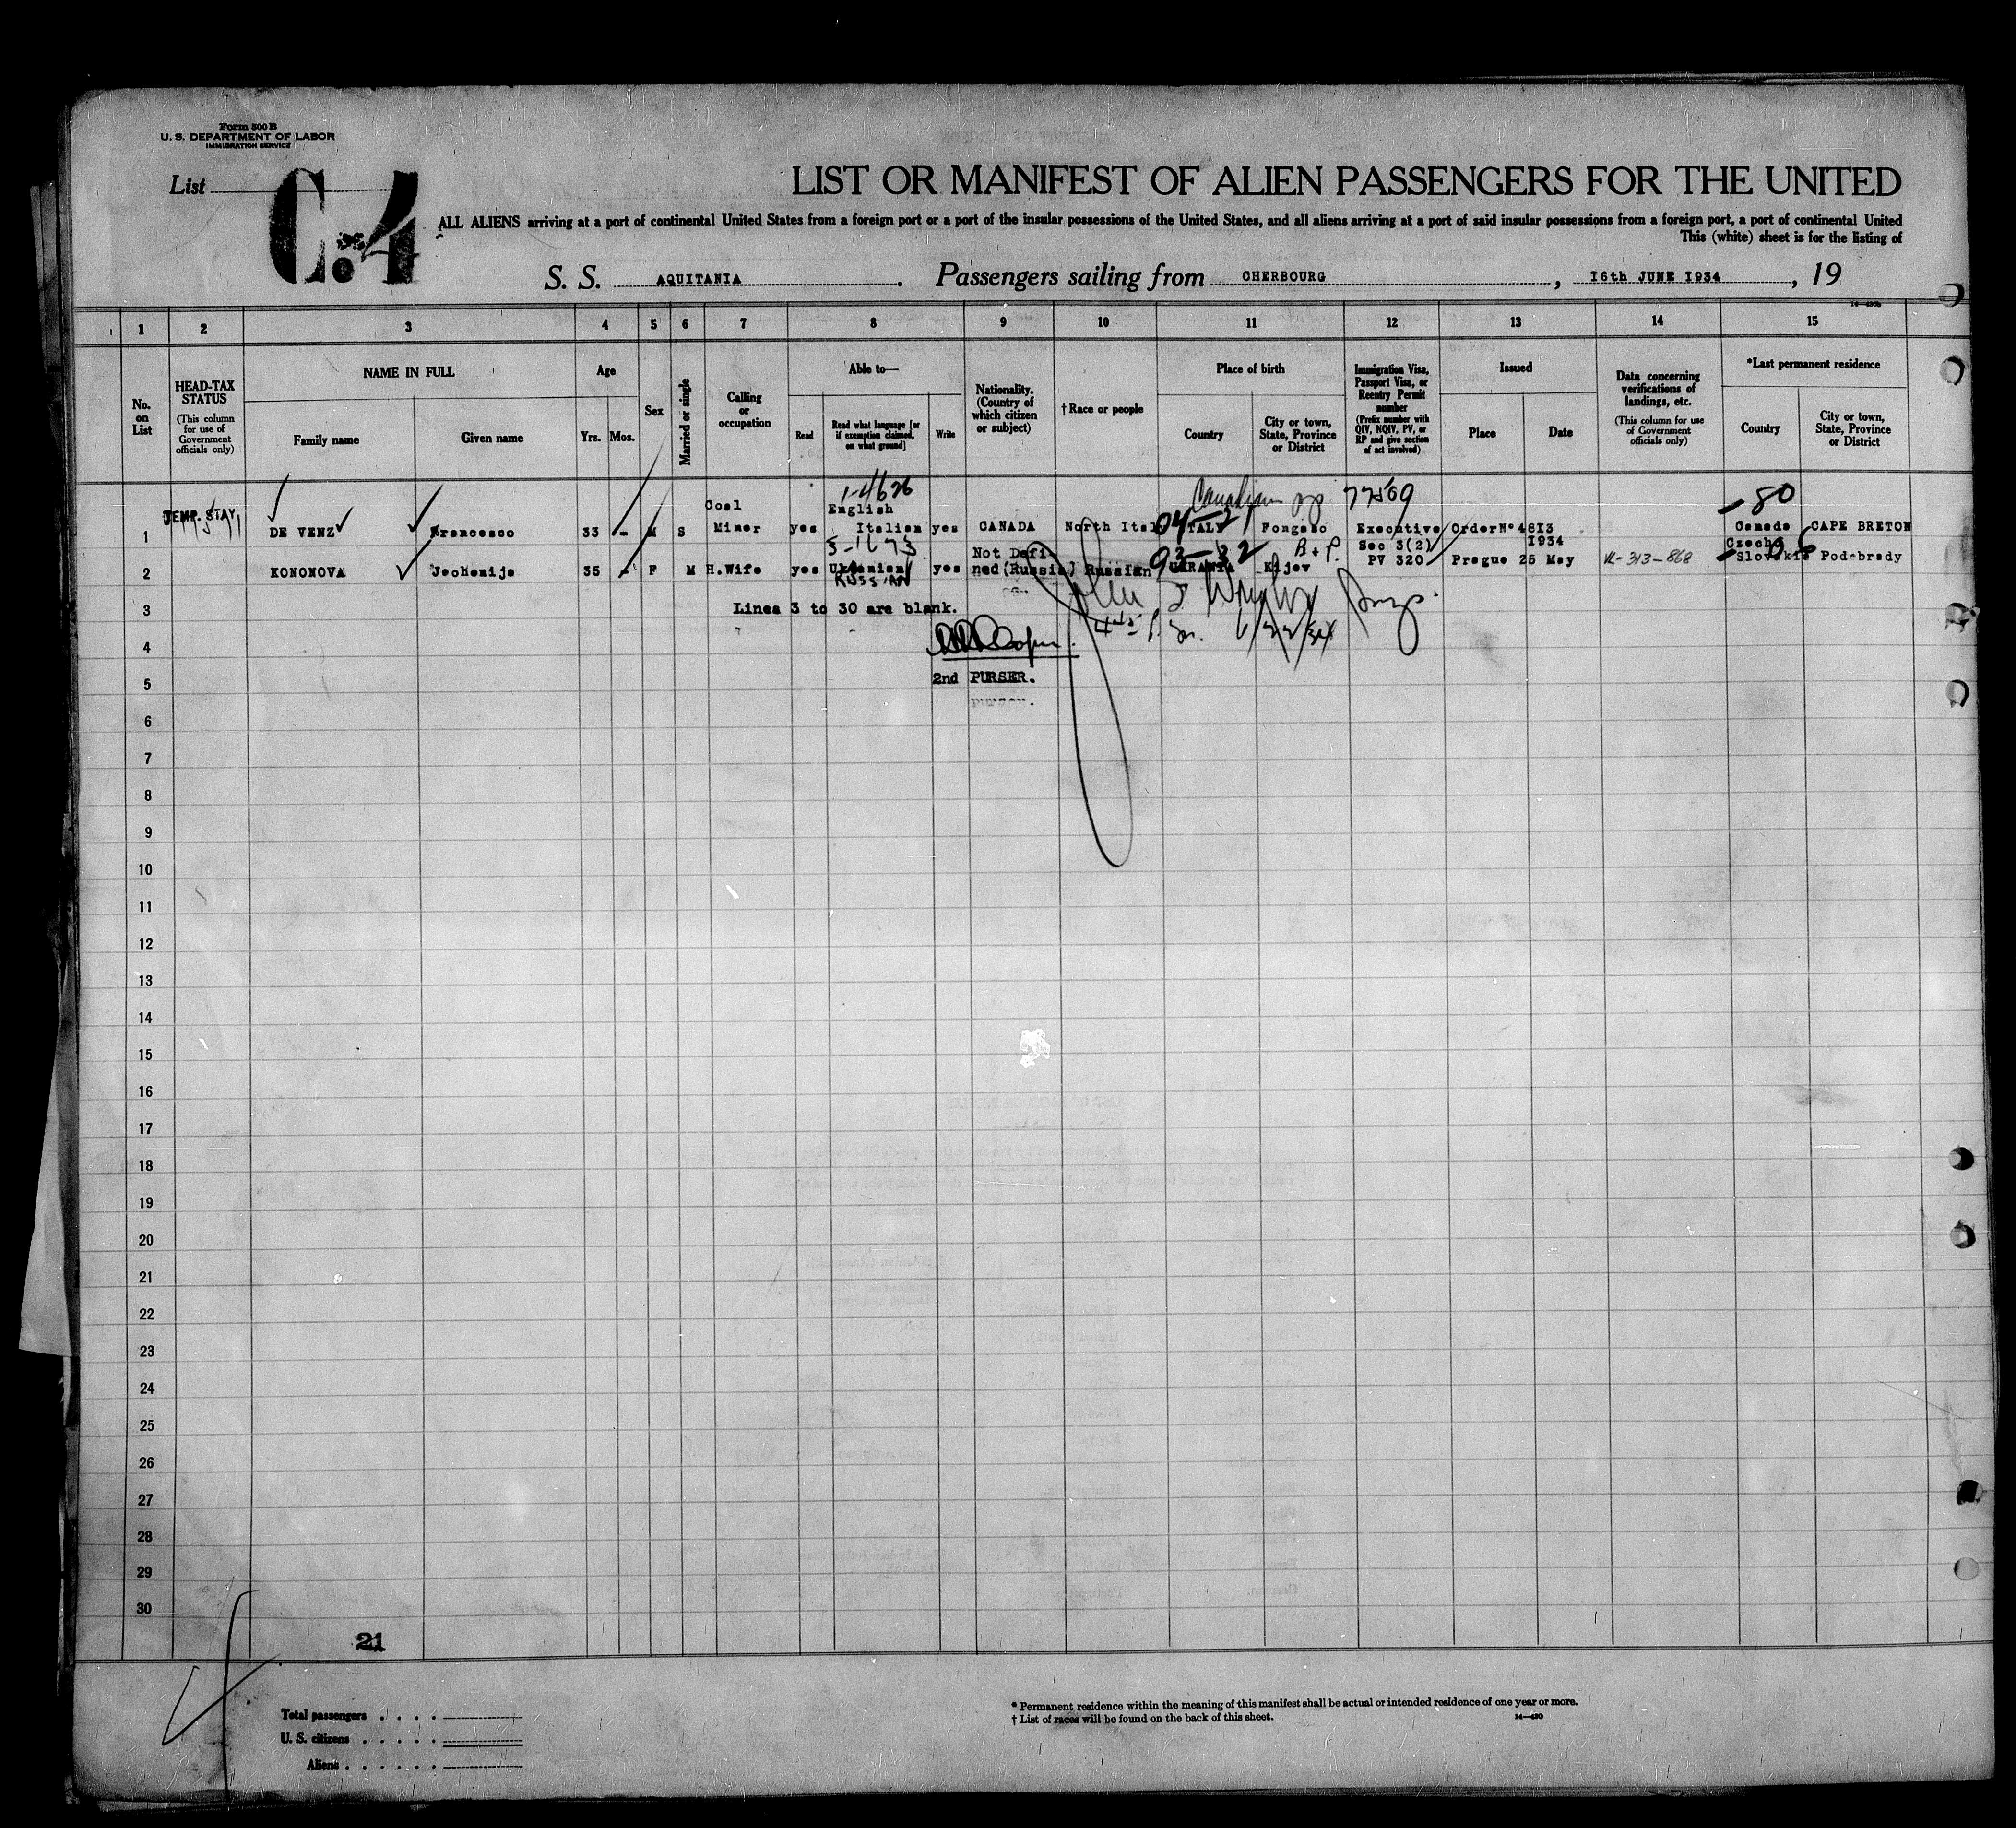 Form 500 B
U. S. DEPARTMENT OF LABOR
IMMIGRATION SERVICE
List
C.4
LIST OR MANIFEST OF ALIEN PASSENGERS FOR THE UNITED
ALL ALIENS arriving at a port of continental United States from a foreign port or a port of the insular possessions of the United States, and all aliens arriving at a port of said insular possessions from a foreign port, a port of continental United
This (white) sheet is for the listing of
S. S. AQUITANIA. Passengers sailing from CHERBOURG, 16th JUNE 1934, 19
14—430b
1 2 3 4 5 6 7 8 9 10 11 12 13 14 15
No. on List
HEAD-TAX STATUS
(This column for use of Government officials only)
NAME IN FULL
Family name
Given name
Age
Yrs. Mos.
Sex
Married or single
Calling or occupation
Able to—
Read
Read what language [or if exemption claimed, on what ground]
Write
Nationality. (Country of which citizen or subject)
†Race or people
Place of birth
Country
City or town, State, Province or District
Immigration Visa, Passport Visa, or Reentry Permit number
(Prefix number with QIV, NQIV, PV, or RP and give section of act involved)
Issued
Place
Date
Data concerning verifications of landings, etc.
(This column for use of Government officials only)
*Last permanent residence
Country
City or town, State, Province or District
1-4626
Canadian 77569
- 80
1 TEMP. STAY DE VENZ Francesco 33 - M S Coal Miner yes English Italian yes CANADA North Ital 04-21 ITALY Fongaso Executive Order Nº 4813 1934 Canada CAPE BRETON
Sec 3(2)
2 KONONOVA Jechenija 35 - F M H.Wife yes Ukranian RUSSIAN yes Not Defi-ned (Russia) Russian UKRANIA Kijev PV 320 Prague 25 May 313-868 Czecho Slovakia Podebrady
3 Lines 3 to 30 are blank.
6/22/34
4
2nd PURSER.
5
6
7
8
9
10
11
12
13
14
15
16
17
18
19
20
21
22
23
24
25
26
27
28
29
30
21
Total passengers . . . .
U. S. citizens . . . . .
Aliens . . . . . .
* Permanent residence within the meaning of this manifest shall be actual or intended residence of one year or more.
† List of races will be found on the back of this sheet.
14—430